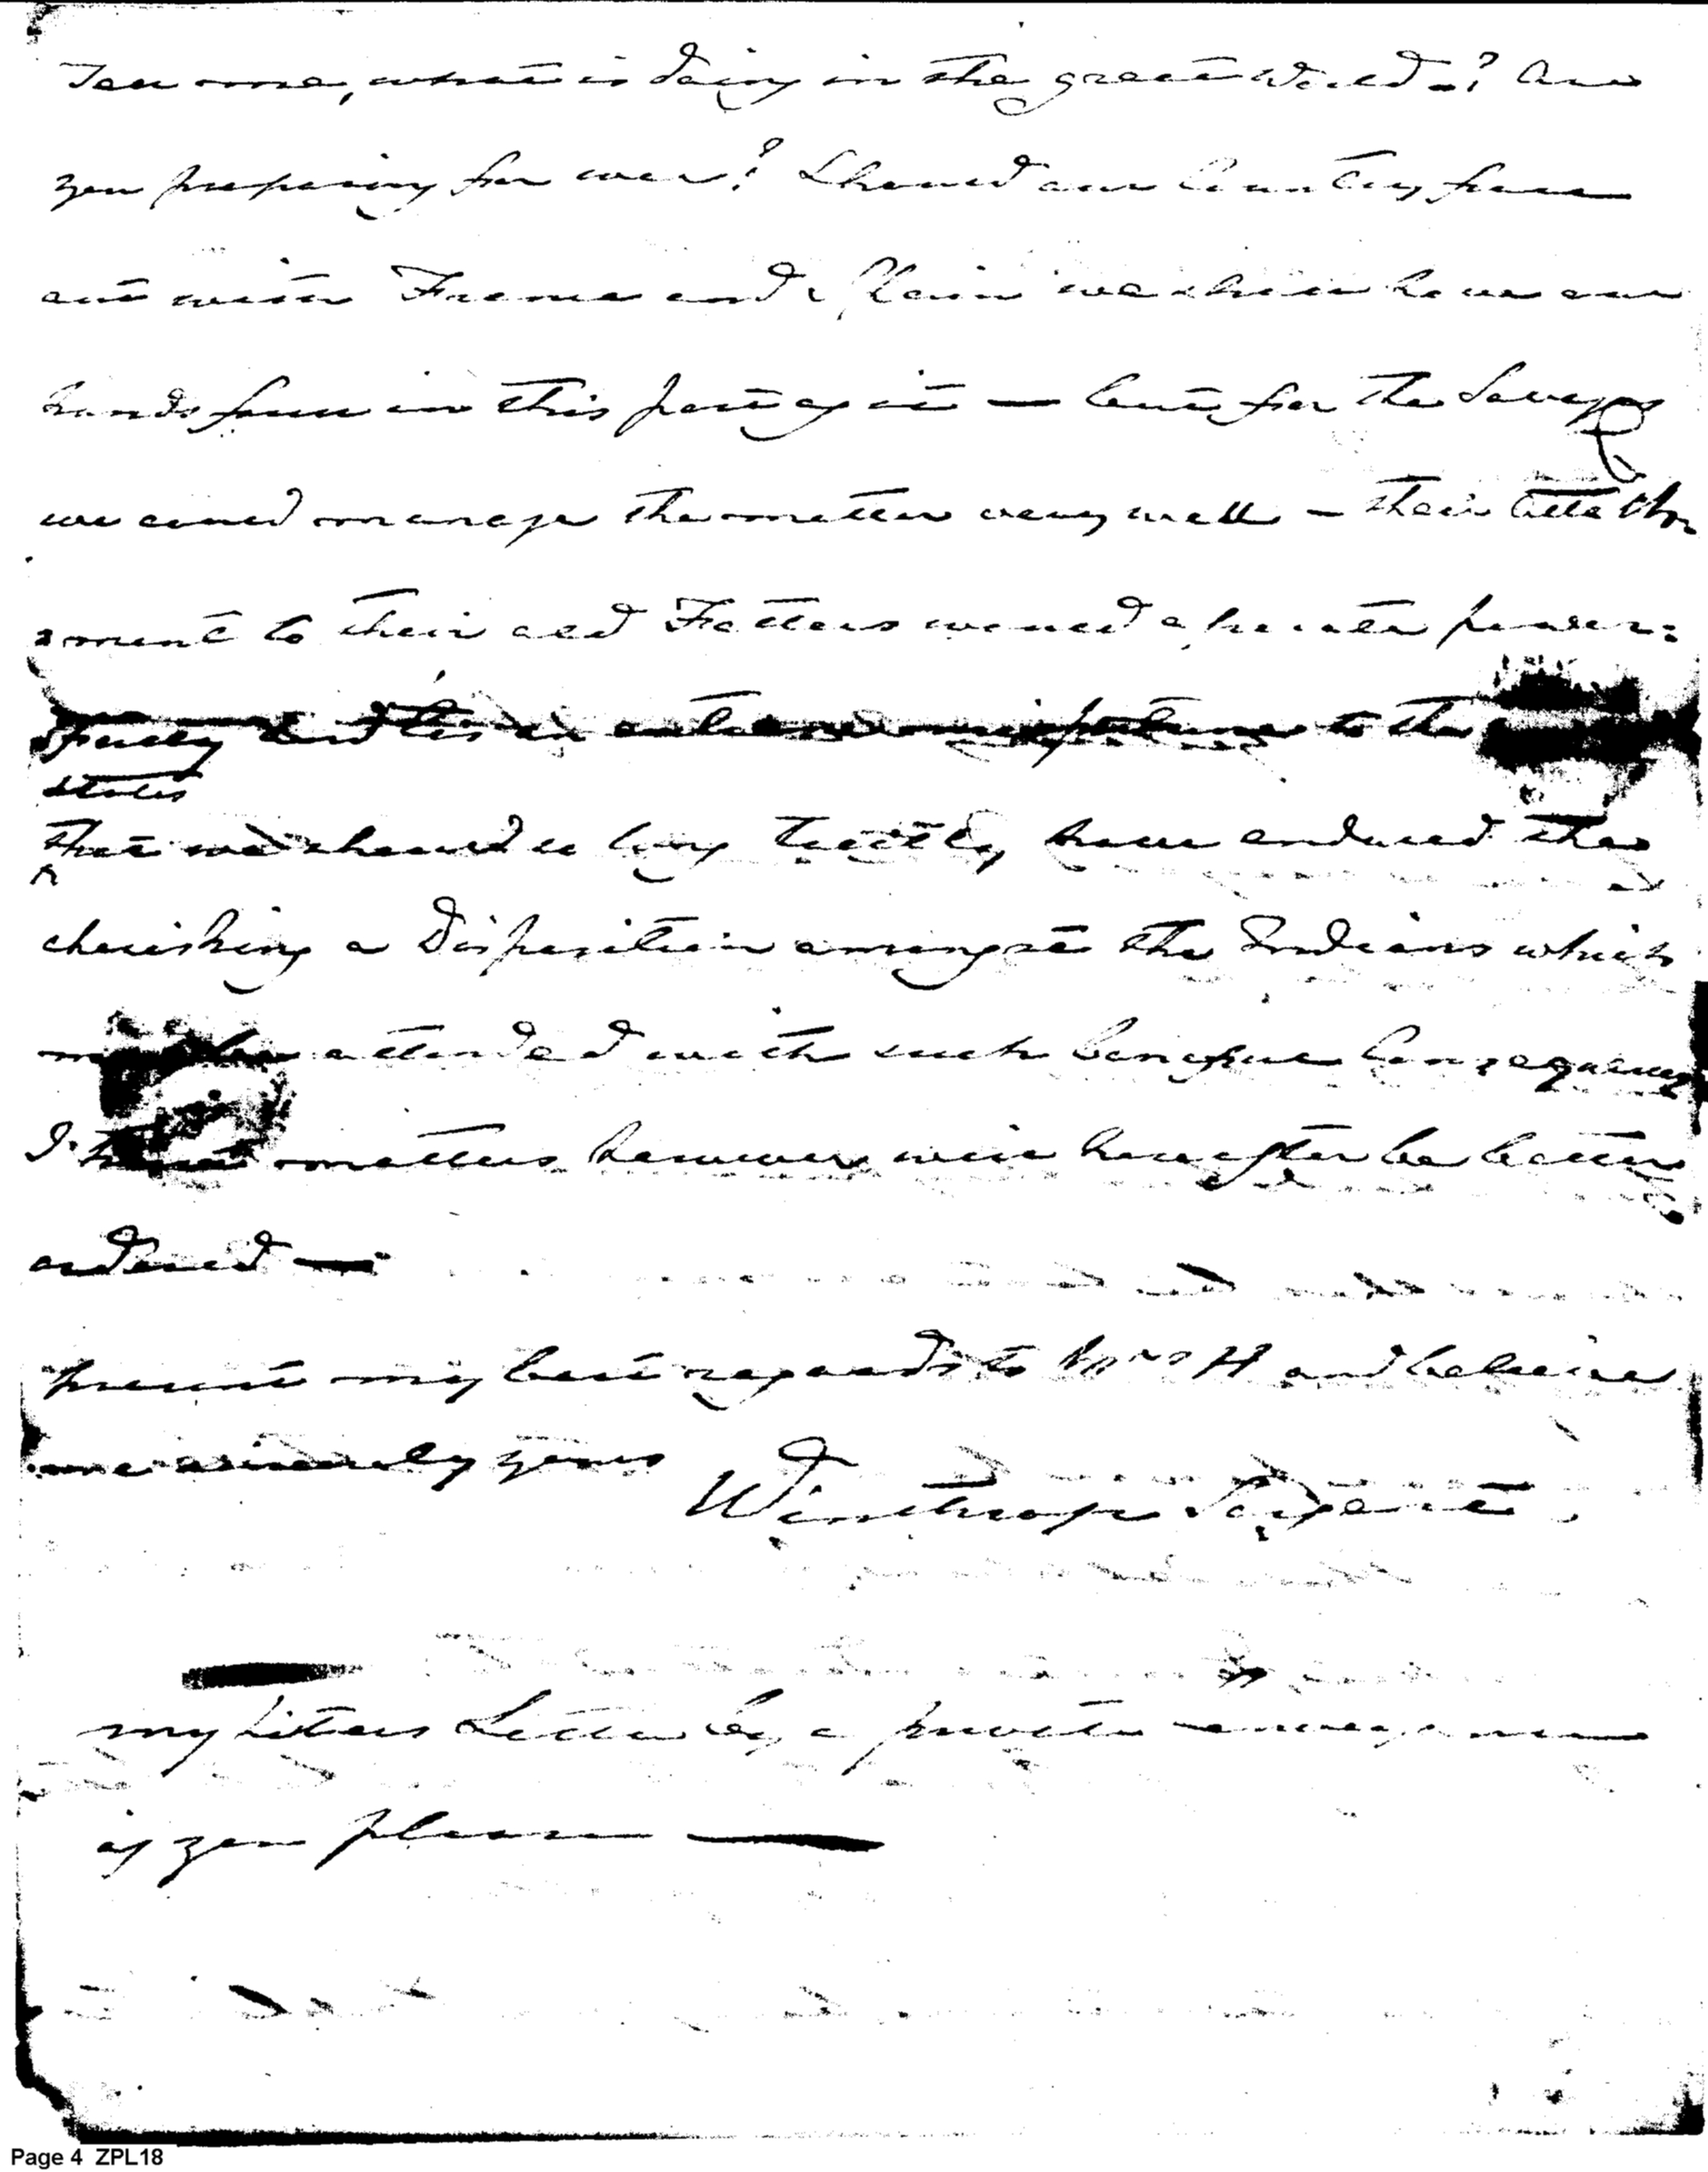 Tell me, what is doing in the great World -? Are
you preparing for war? Should our Country fall
out with France and Spain we shall have our
hands full in this part of it — but for the Savages
we could manage the matter very well - their attach
=ment to their old Fathers would operate power:
=fully and tis an extreme misfortune to the
states
that we should so long tacitly have endured the
cherishing a Disposition amongst the Indians which
may be attended with such baneful Consequences
I trust matters however will hereafter be better
ordered —
present my best regards to Mrs H and believe
me sincerely yours
Winthrop Sargent
my Sisters Letter by a private conveyance
if you please —
Page 4 ZPL18